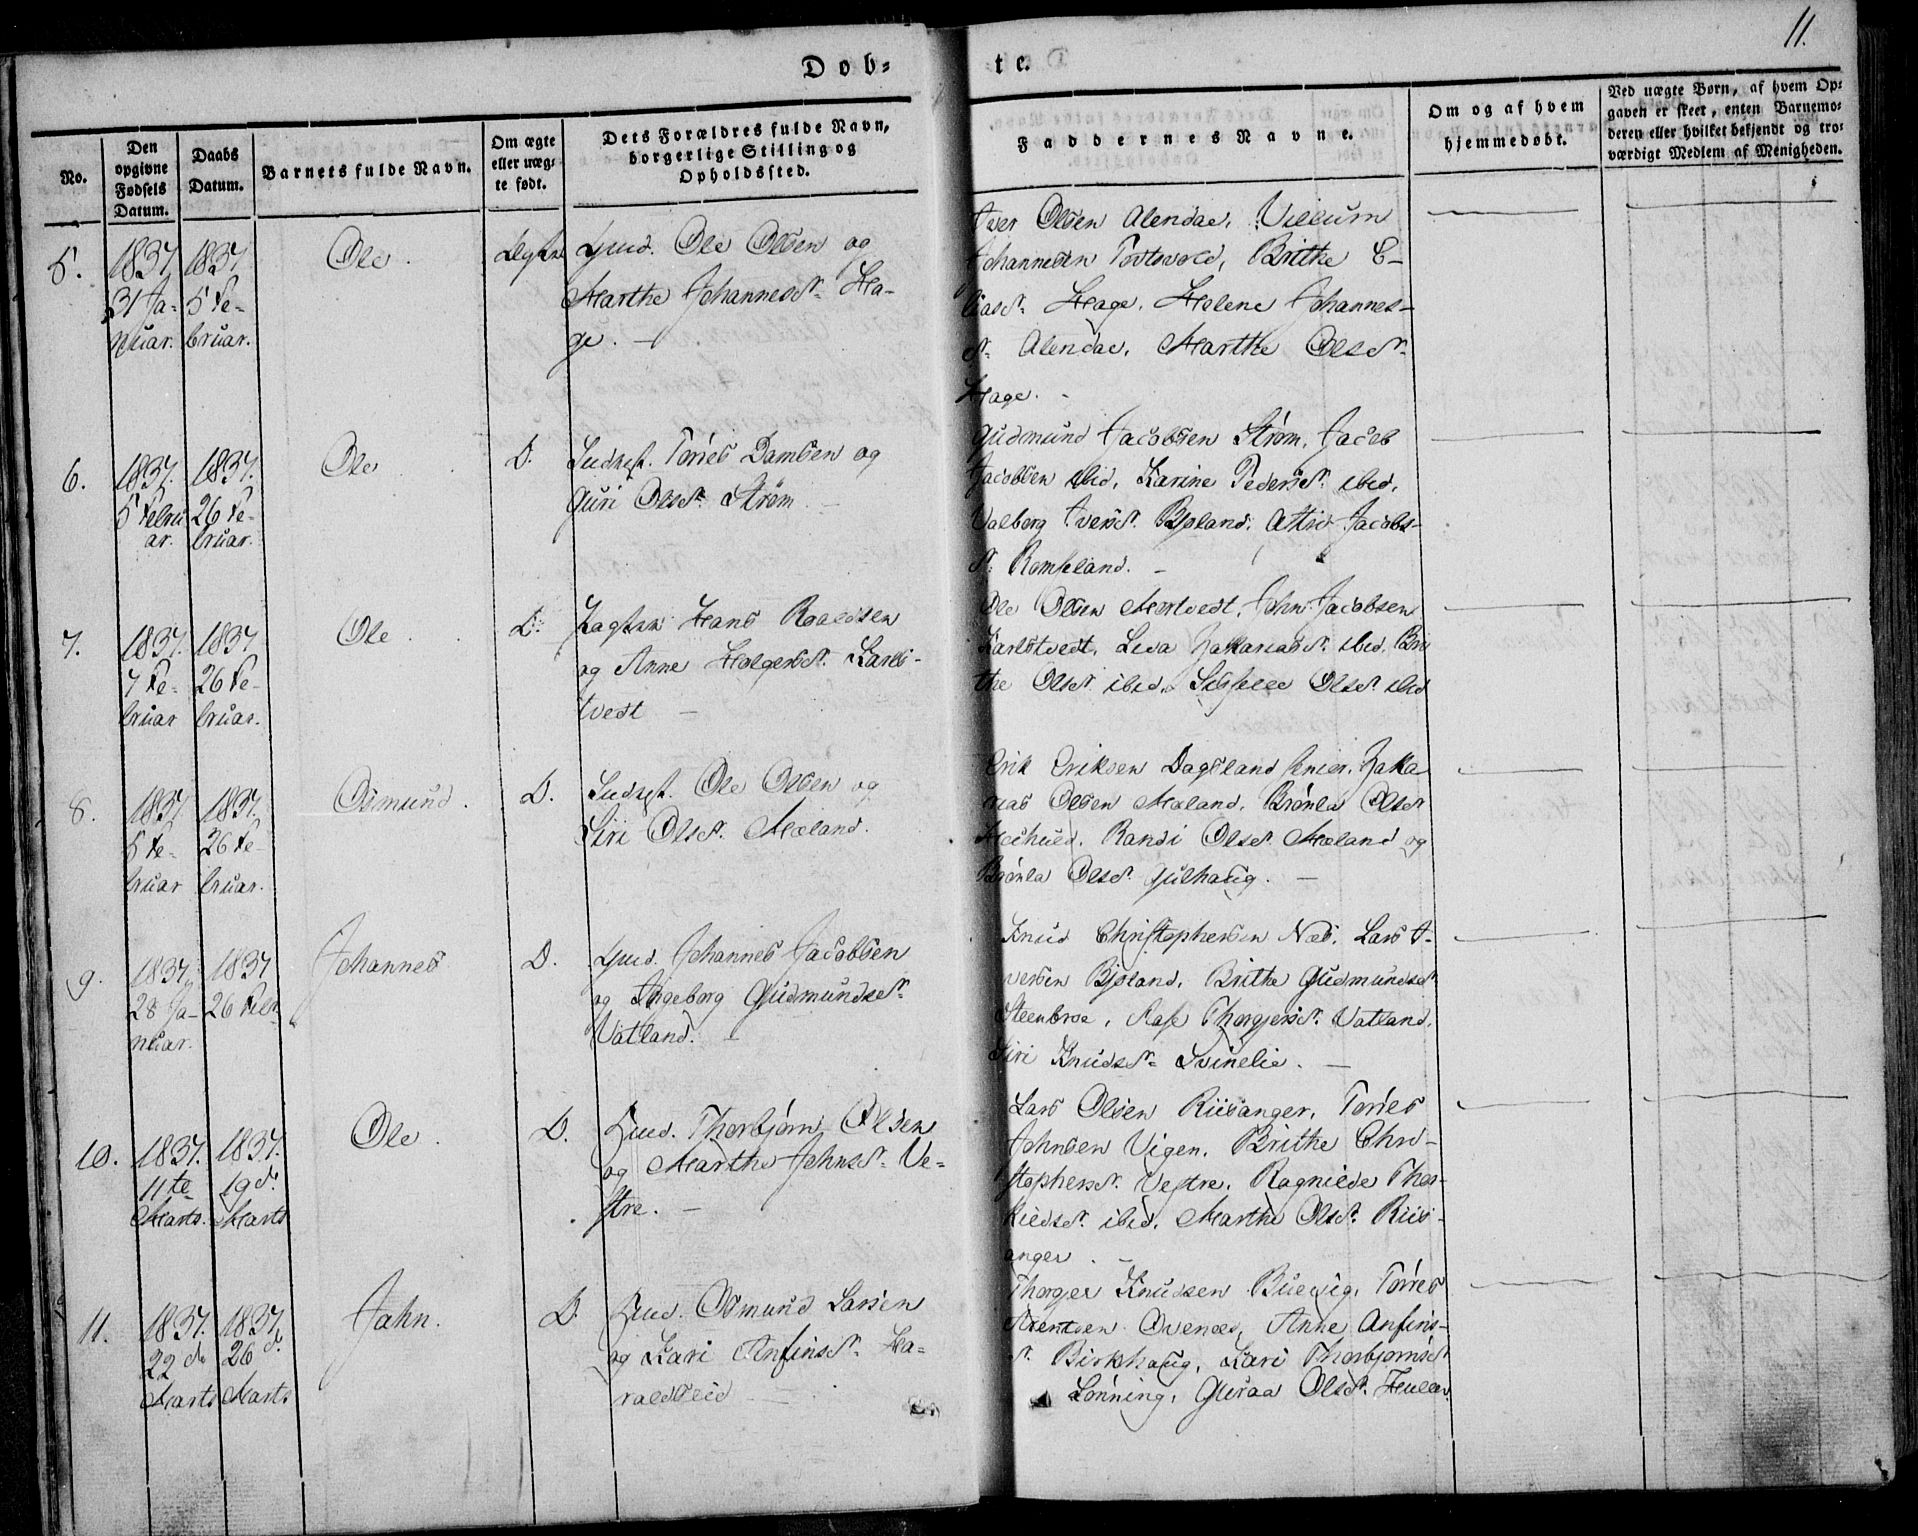 Døb-
te.
11.
No.
Den opgivne Fødsels Datum.
Daabs Datum.
Barnets fulde Navn.
Om ægte eller uægte født.
Dets Forældres fulde Navn, borgerlige Stilling og Opholdssted.
Faddernes Navne.
Om og af hvem hjemmedøbt.
Ved uægte Børn, af hvem Opgaven er skeet, enten Barnemoderen eller hvilket bekjendt og troværdigt Medlem af Menigheden.
5.
1837
31 Ja-
nuar.
1837
5 Fe-
bruar.
Ole.
Ægte
Gmd. Ole Olsen og
Marthe Johannesdr. Ha-
ge.
Iver Olsen Alendal, Villum
Johannesen Tvetvold, Brithe E-
liasdr. Hage, Helene Johannes-
dr. Alendal, Marthe Olsdr.
Hage.
6.
1837.
5 Febru
ar.
1837.
26 Fe-
bruar.
Ole
D.
Torres Damsen og
Guri Olsdr. Strøm.
Gudmund Jacobsen Strøm, Jacob
Jacobsen ibid, Karine Pedersdr. ibid,
Valborg Iversdr. Bjoland, Jacobs-
dr. Romseland.
7.
1837.
7 Fe-
bruar
1837
26 Fe-
bruar.
Ole
D.
Hans Roaldsen
og Anne Holgersdr. Karls-
tvedt
Ole Olsen Mortvedt, John Jacobsen
Karlstvedt, Liva Zakariasdr. ibid, Bri
the Olsdr. ibid, Olsdr. ibid
8.
1837.
5 Fe-
bruar
1837.
26 Fe-
bruar.
Osmund.
D.
Ole Olsen og
Siri Olsdr. Mæland.
Erik Eriksen Dagsland senior, Zaka
rias Olsen Mæland, Brønla Olsdr
Randi Olsdr. Mæland og
Brønla Olsdr. Gulhaug.
9.
1837.
28 Ja-
nuar.
1837
26 Febr
Johannes
D.
Gmd. Johannes Jacobsen
og Ingeborg Gudmundsdr.
Vatland.
Knud Christophersen Næs, Lars I-
versen Bjoland, Brithe Gudmundsdr
Steenbroe, Thorgersdr. Vatland,
Siri Knudsdr. Svinelie.
10.
1837.
11te
Marts.
1837.
19 d.
Marts
Ole.
D.
Gmd. Thorbjørn Olsen
og Marthe Johnsdr. Ve-
stre.
Lars Olsen Riisanger, Torres
Johnsen Vigen, Brithe Chri-
stophersdr. Vestre, Ragnilde Thor-
kildsdr. ibid, Marthe Olsdr. Riis-
anger.
11.
1837.
22 de
Marts
1837.
26 d.
Marts
John.
D.
Gmd. Osmund Larsen
og Kari Anfinsdr. Ha-
raldseid
Thorger Knudsen Buevig, Torres
Arentsen Ovenæs, Anne Anfins-
dr. Birkhaug, Kari Thorbjørnsdr
Lønning, Guroa Olsdr.